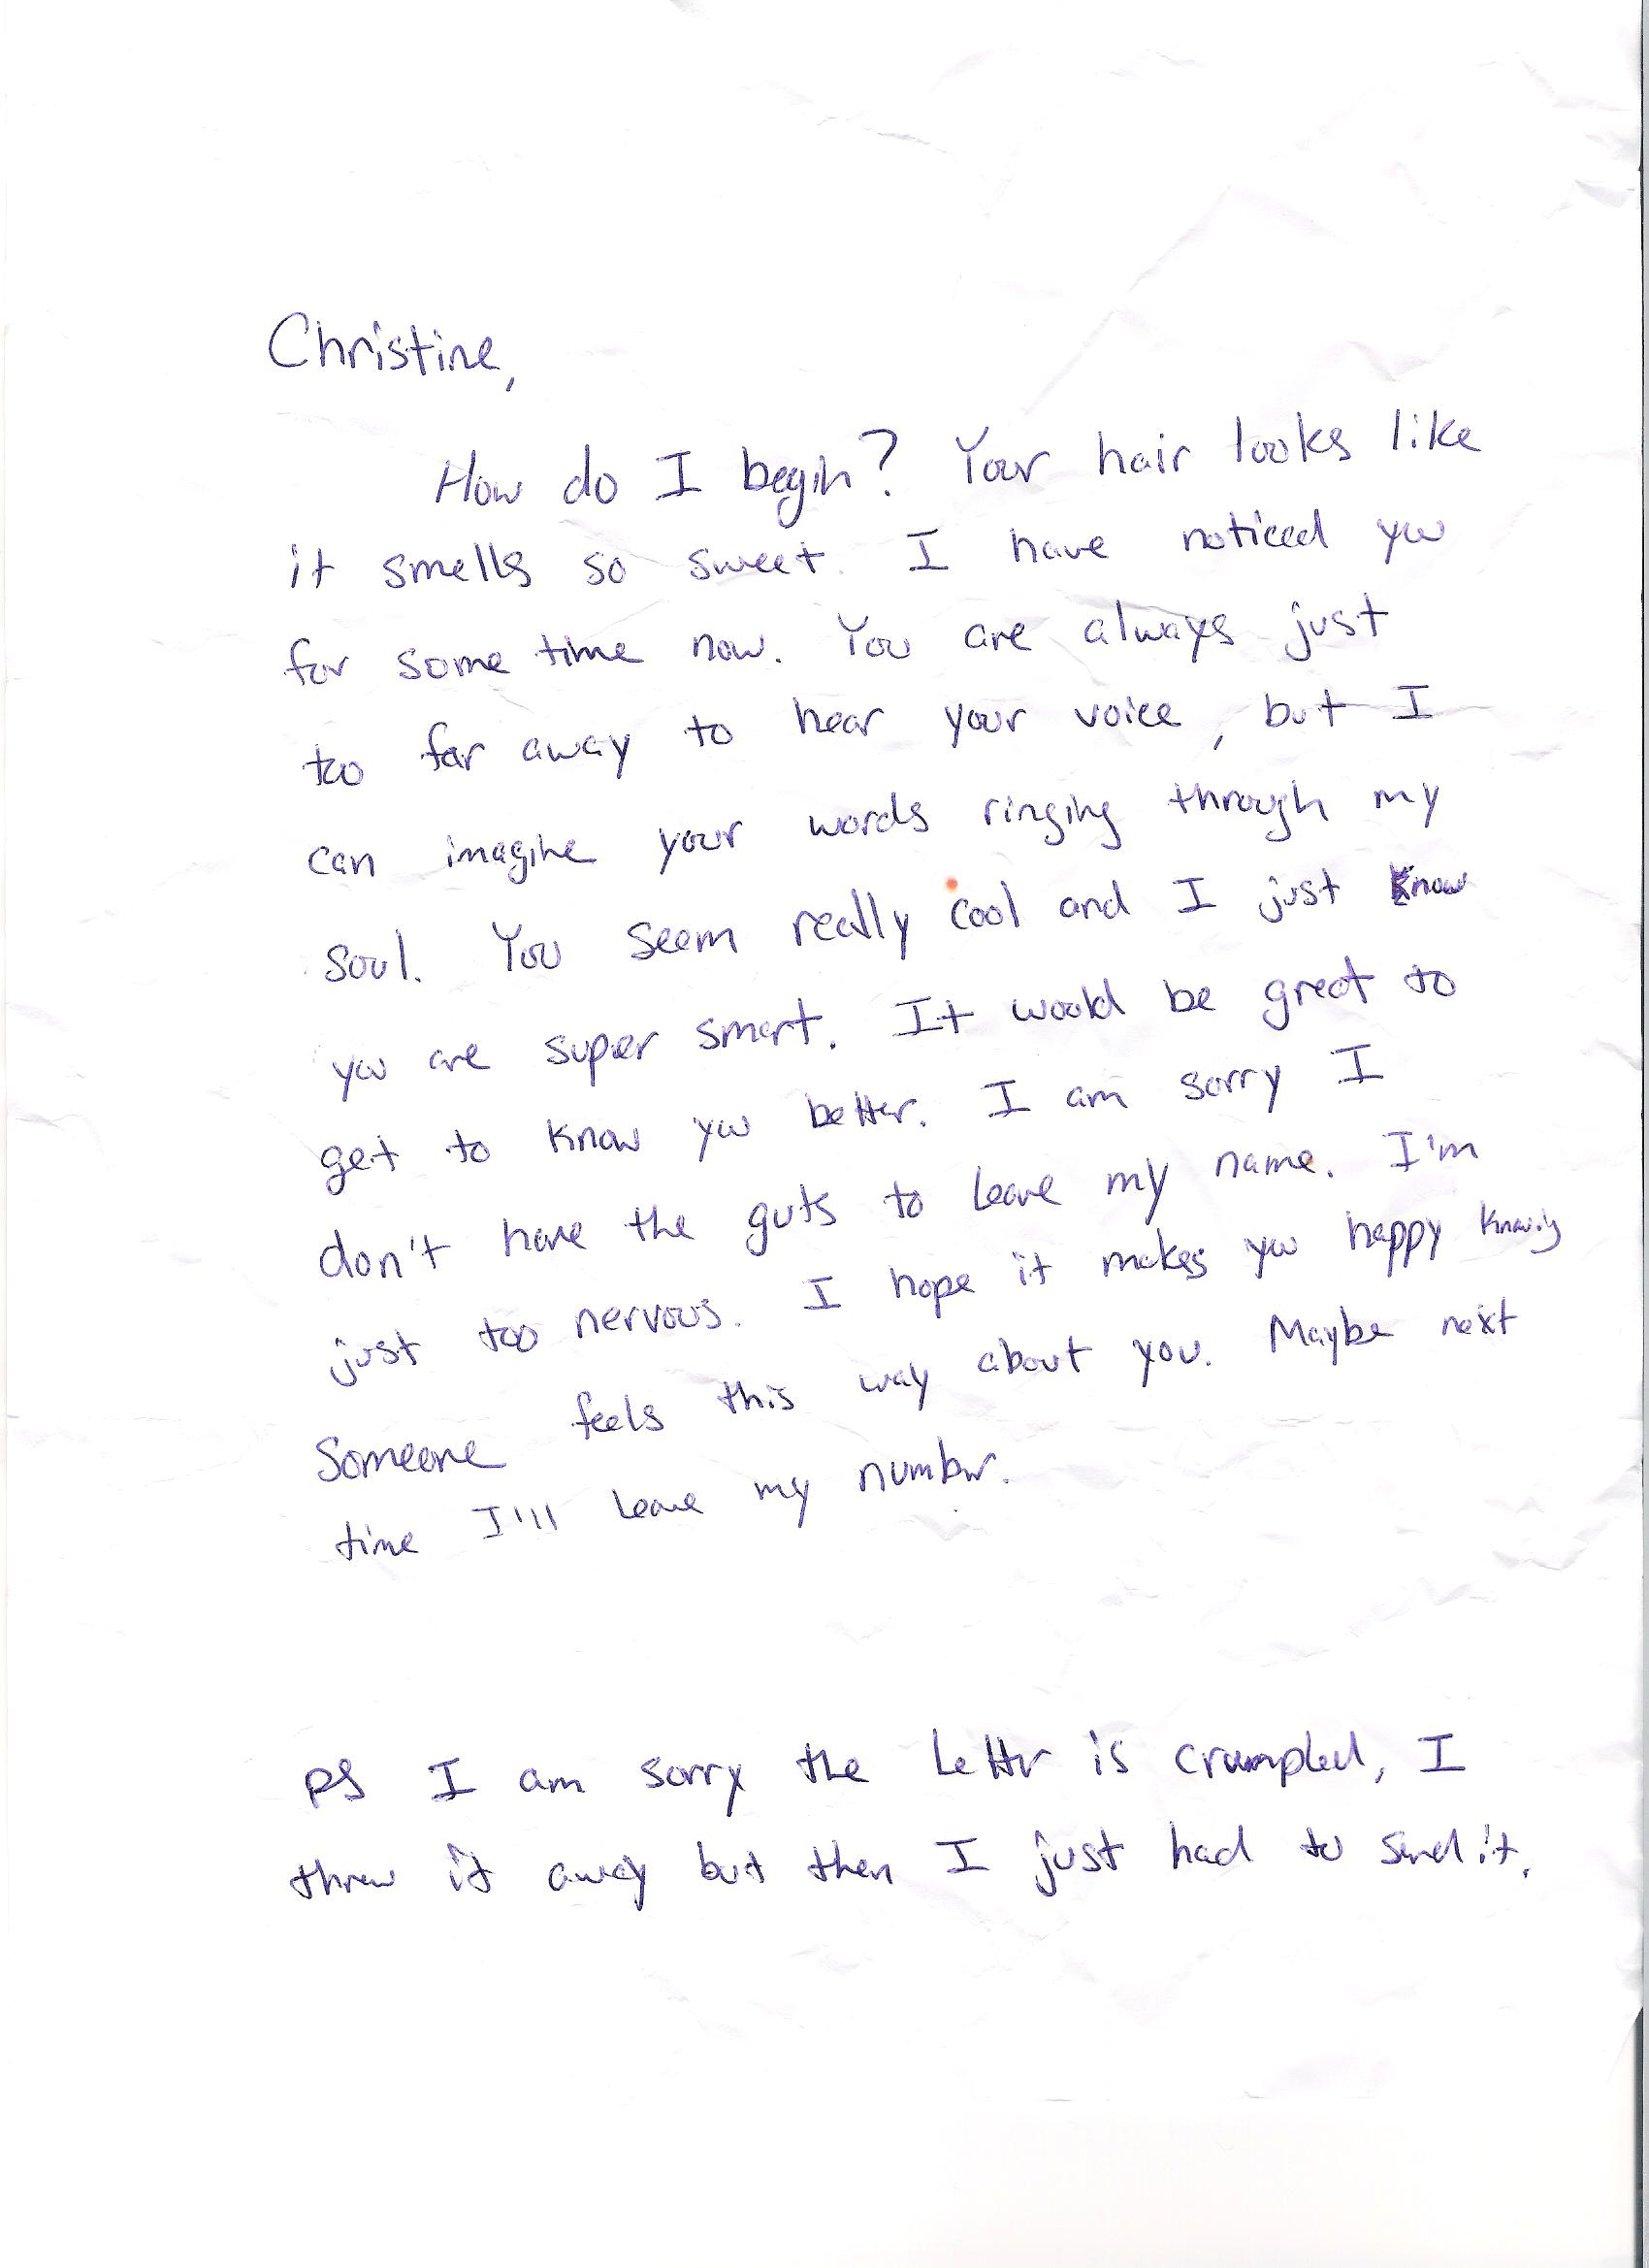 Christine,
How do I begin? Your hair looks like
it smells so sweet. I have noticed you
for some time now. You are always just
too far away to hear your voice, but I
can imagine your words ringing through my
soul. You seem really cool and I just know
you are super smart. It would be great to
get to know you better. I am sorry I
don't have the guts to leave my name. I'm
just too nervous. I hope it makes you happy knowing
someone feels this way about you. Maybe next
time I'll leave my number.
PS I am sorry the letter is crumpled, I
threw it away but then I just had to send it.